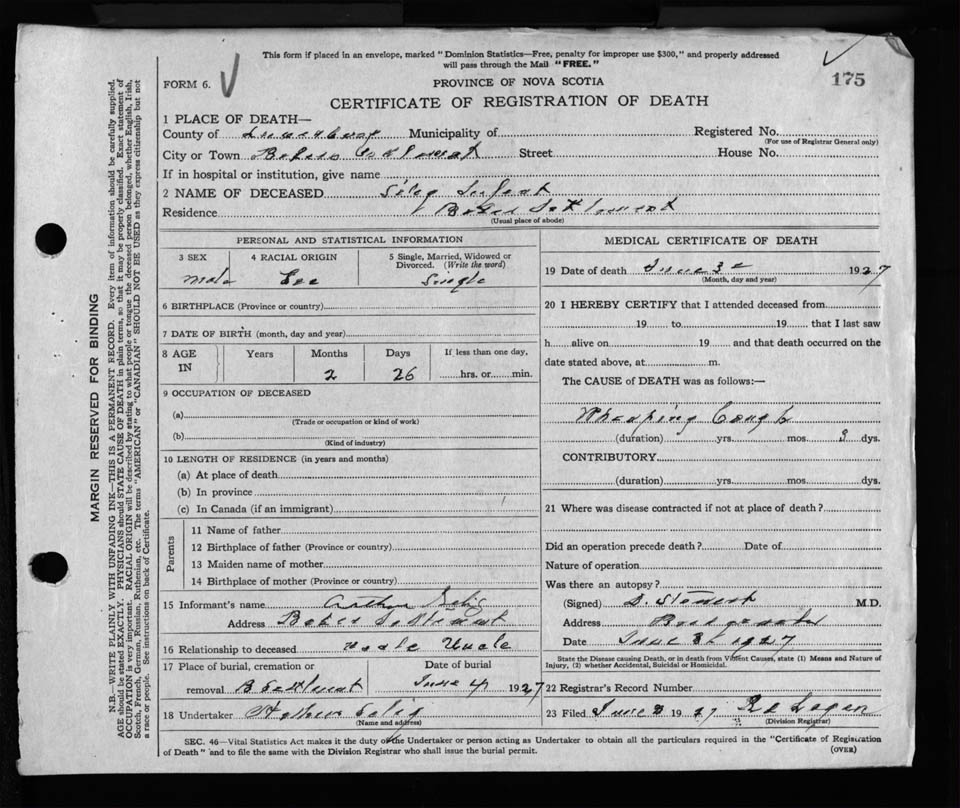 This form if placed in an envelope, marked "Dominion Statistics—Free, penalty for improper use $300," and properly addressed
will pass through the Mail "FREE."
175
FORM 6.
PROVINCE OF NOVA SCOTIA
CERTIFICATE OF REGISTRATION OF DEATH
1 PLACE OF DEATH—
County of Lunenburg Municipality of Registered No.
(For use of Registrar General only)
City or Town Bakers Settlement Street House No.
If in hospital or institution, give name
2 NAME OF DECEASED Infant
Residence Baker Settlement
(Usual place of abode)
PERSONAL AND STATISTICAL INFORMATION
3 SEX 4 RACIAL ORIGIN 5 Single, Married, Widowed or
Divorced. (Write the word)
Male Single
6 BIRTHPLACE (Province or country)
7 DATE OF BIRTH (month, day and year)
8 AGE Years Months Days If less than one day,
IN 2 26 hrs. or min.
9 OCCUPATION OF DECEASED
(a)
(Trade or occupation or kind of work)
(b)
(Kind of industry)
10 LENGTH OF RESIDENCE (in years and months)
(a) At place of death
(b) In province
(c) In Canada (if an immigrant)
Parents
11 Name of father
12 Birthplace of father (Province or country)
13 Maiden name of mother
14 Birthplace of mother (Province or country)
15 Informant's name Arthur
Address Baker Settlement
16 Relationship to deceased Uncle
17 Place of burial, cremation or Date of burial
removal B. Settlement June 4 1927
18 Undertaker
(Name and address)
MEDICAL CERTIFICATE OF DEATH
19 Date of death June 3 1927
(Month, day and year)
20 I HEREBY CERTIFY that I attended deceased from
19 to 19 that I last saw
h alive on 19 and that death occurred on the
date stated above, at m.
The CAUSE of DEATH was as follows:—
Whooping Cough
(duration) yrs. mos. dys.
CONTRIBUTORY
(duration) yrs. mos. dys.
21 Where was disease contracted if not at place of death?
Did an operation precede death? Date of
Nature of operation
Was there an autopsy?
(Signed) M.D.
Address Bridgewater
Date June 1927
State the Disease causing Death, or in death from Violent Causes, state (1) Means and Nature of
Injury, (2) whether Accidental, Suicidal or Homicidal.
22 Registrar's Record Number
23 Filed June 1927 Logan
(Division Registrar)
SEC. 46—Vital Statistics Act makes it the duty of the Undertaker or person acting as Undertaker to obtain all the particulars required in the "Certificate of Registration
of Death" and to file the same with the Division Registrar who shall issue the burial permit.
(OVER)
MARGIN RESERVED FOR BINDING
N.B.—WRITE PLAINLY WITH UNFADING INK—THIS IS A PERMANENT RECORD. Every item of information should be carefully supplied.
AGE should be stated EXACTLY. PHYSICIANS should STATE CAUSE OF DEATH in plain terms, so that it may be properly classified. Exact statement of
OCCUPATION is very important. RACIAL ORIGIN will be described by stating to what people or tongue the deceased person belonged, whether English, Irish,
Scotch, French, German, Russian, Ruthenian, etc. The terms "AMERICAN" or "CANADIAN" SHOULD NOT BE USED as they express citizenship but not
a race or people. See instructions on back of Certificate.